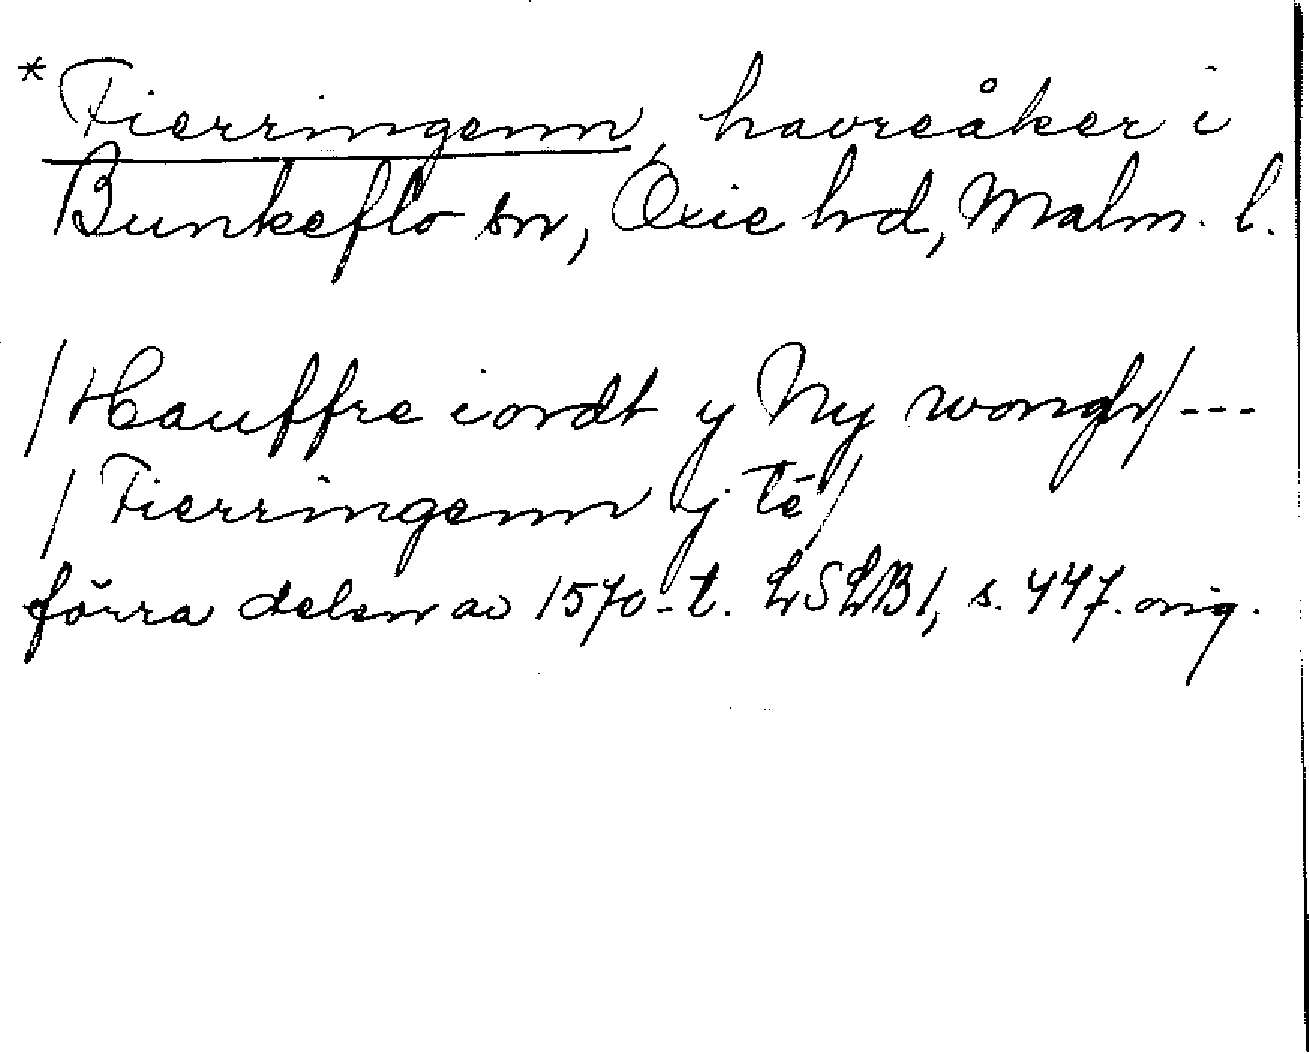 * Fierringenn, havreåker i
Bunkeflo sn, Oxie hd, Malm. l.
/Hauffre iordt y Ny wongh/---
/Fierringenn y tē/
förra delen av 1570-t. LSLB1, s. 447. orig.